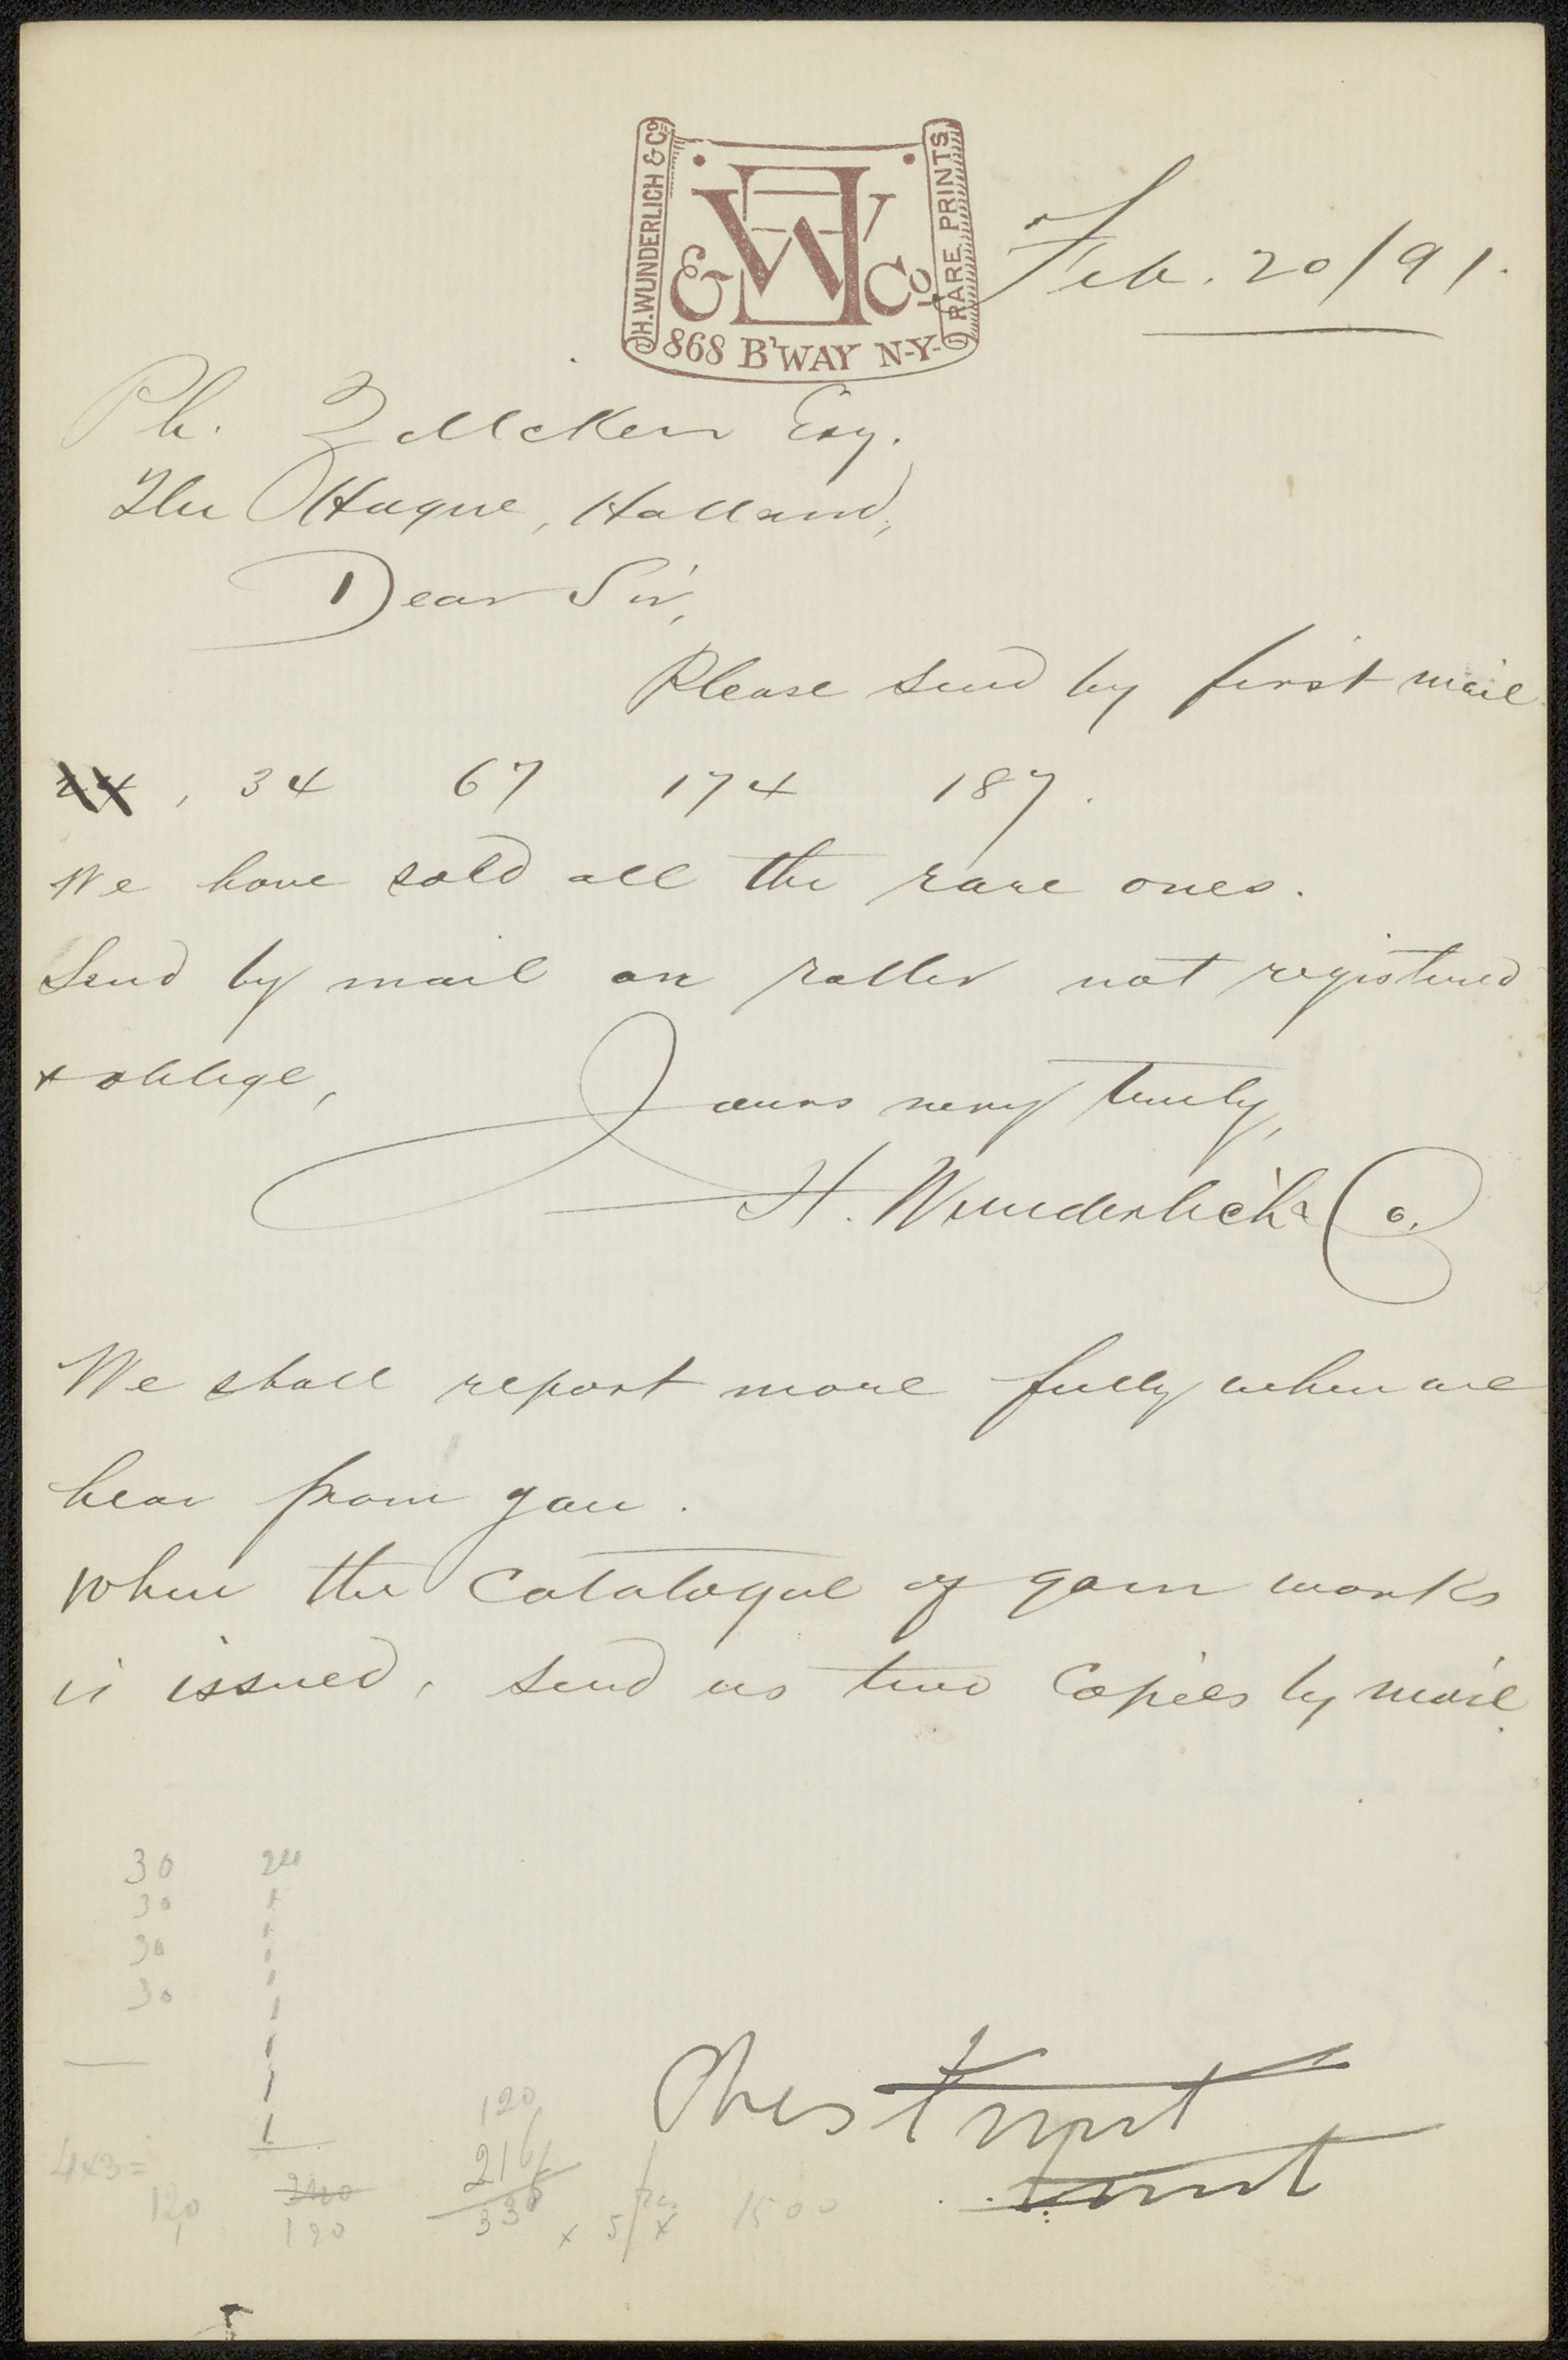 H. WUNDERLICH & Co.
HW & Co.
RARE PRINTS
868 B'WAY N-Y-
Feb. 20/91.
Ph. Zilcken Esq.
The Hague, Holland,
Dear Sir,
Please send by first mail
, 34 67 174 187.
We have sold all the rare ones.
Send by mail on roller not registered
& oblige,
Yours very truly,
H. Wunderlich & Co.
We shall report more fully when we
hear from you.
When the Catalogue of your works
is issued, send us two Copies by mail
30
30
30
30
4x3=
120
120
216
336
x 5
1500